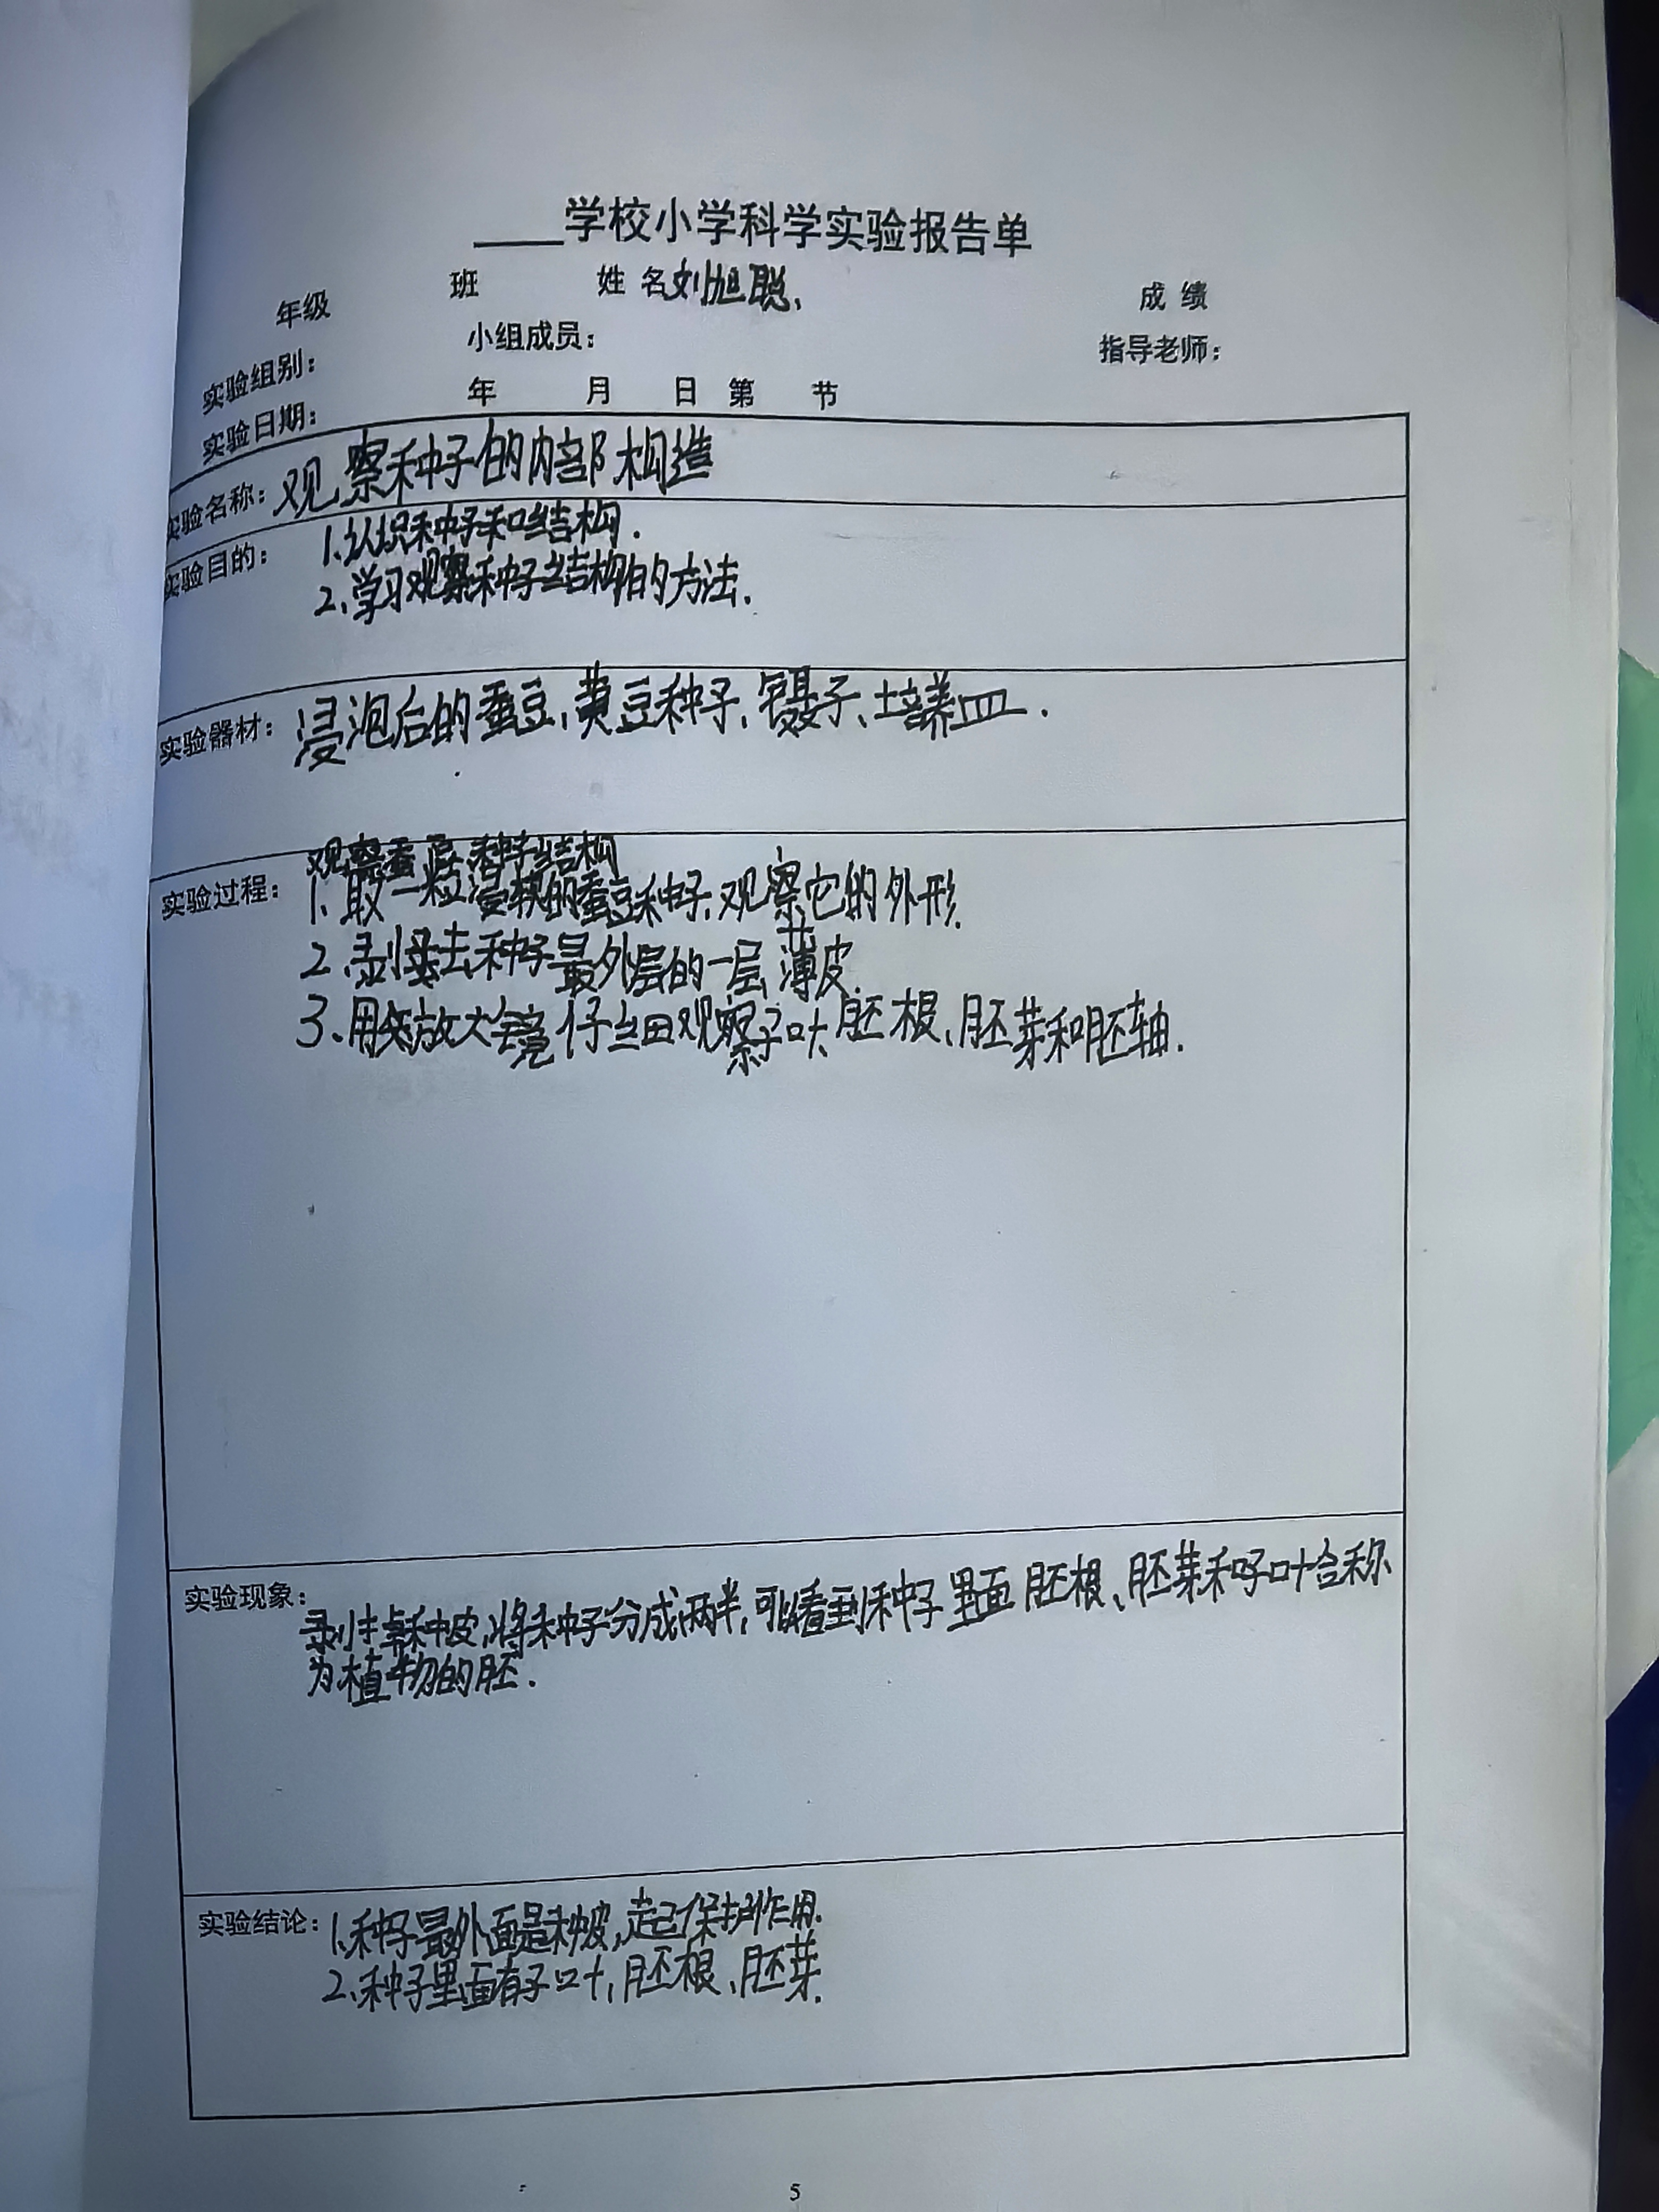 ____学校小学科学实验报告单
年级 班 姓名刘旭聪. 成绩
实验组别: 小组成员: 指导老师:
实验日期: 年 月 日 第 节
实验名称: 观察种子的内部构造
实验目的: 1.认识种子和结构.
2.学习观察种子结构的方法.
实验器材: 浸泡后的蚕豆,黄豆种子、镊子、培养皿.
观察蚕豆种子结构
实验过程: 1.取一粒浸软的蚕豆种子,观察它的外形.
2.剥去种子最外层的一层薄皮.
3.用放大镜仔细观察子叶、胚根、胚芽和胚轴.
实验现象:
剥掉种皮,将种子分成两半,可以看到种子里面胚根、胚芽和子叶合称
为植物的胚.
实验结论: 1.种子最外面是种皮,起保护作用.
2.种子里面有子叶,胚根、胚芽.
5